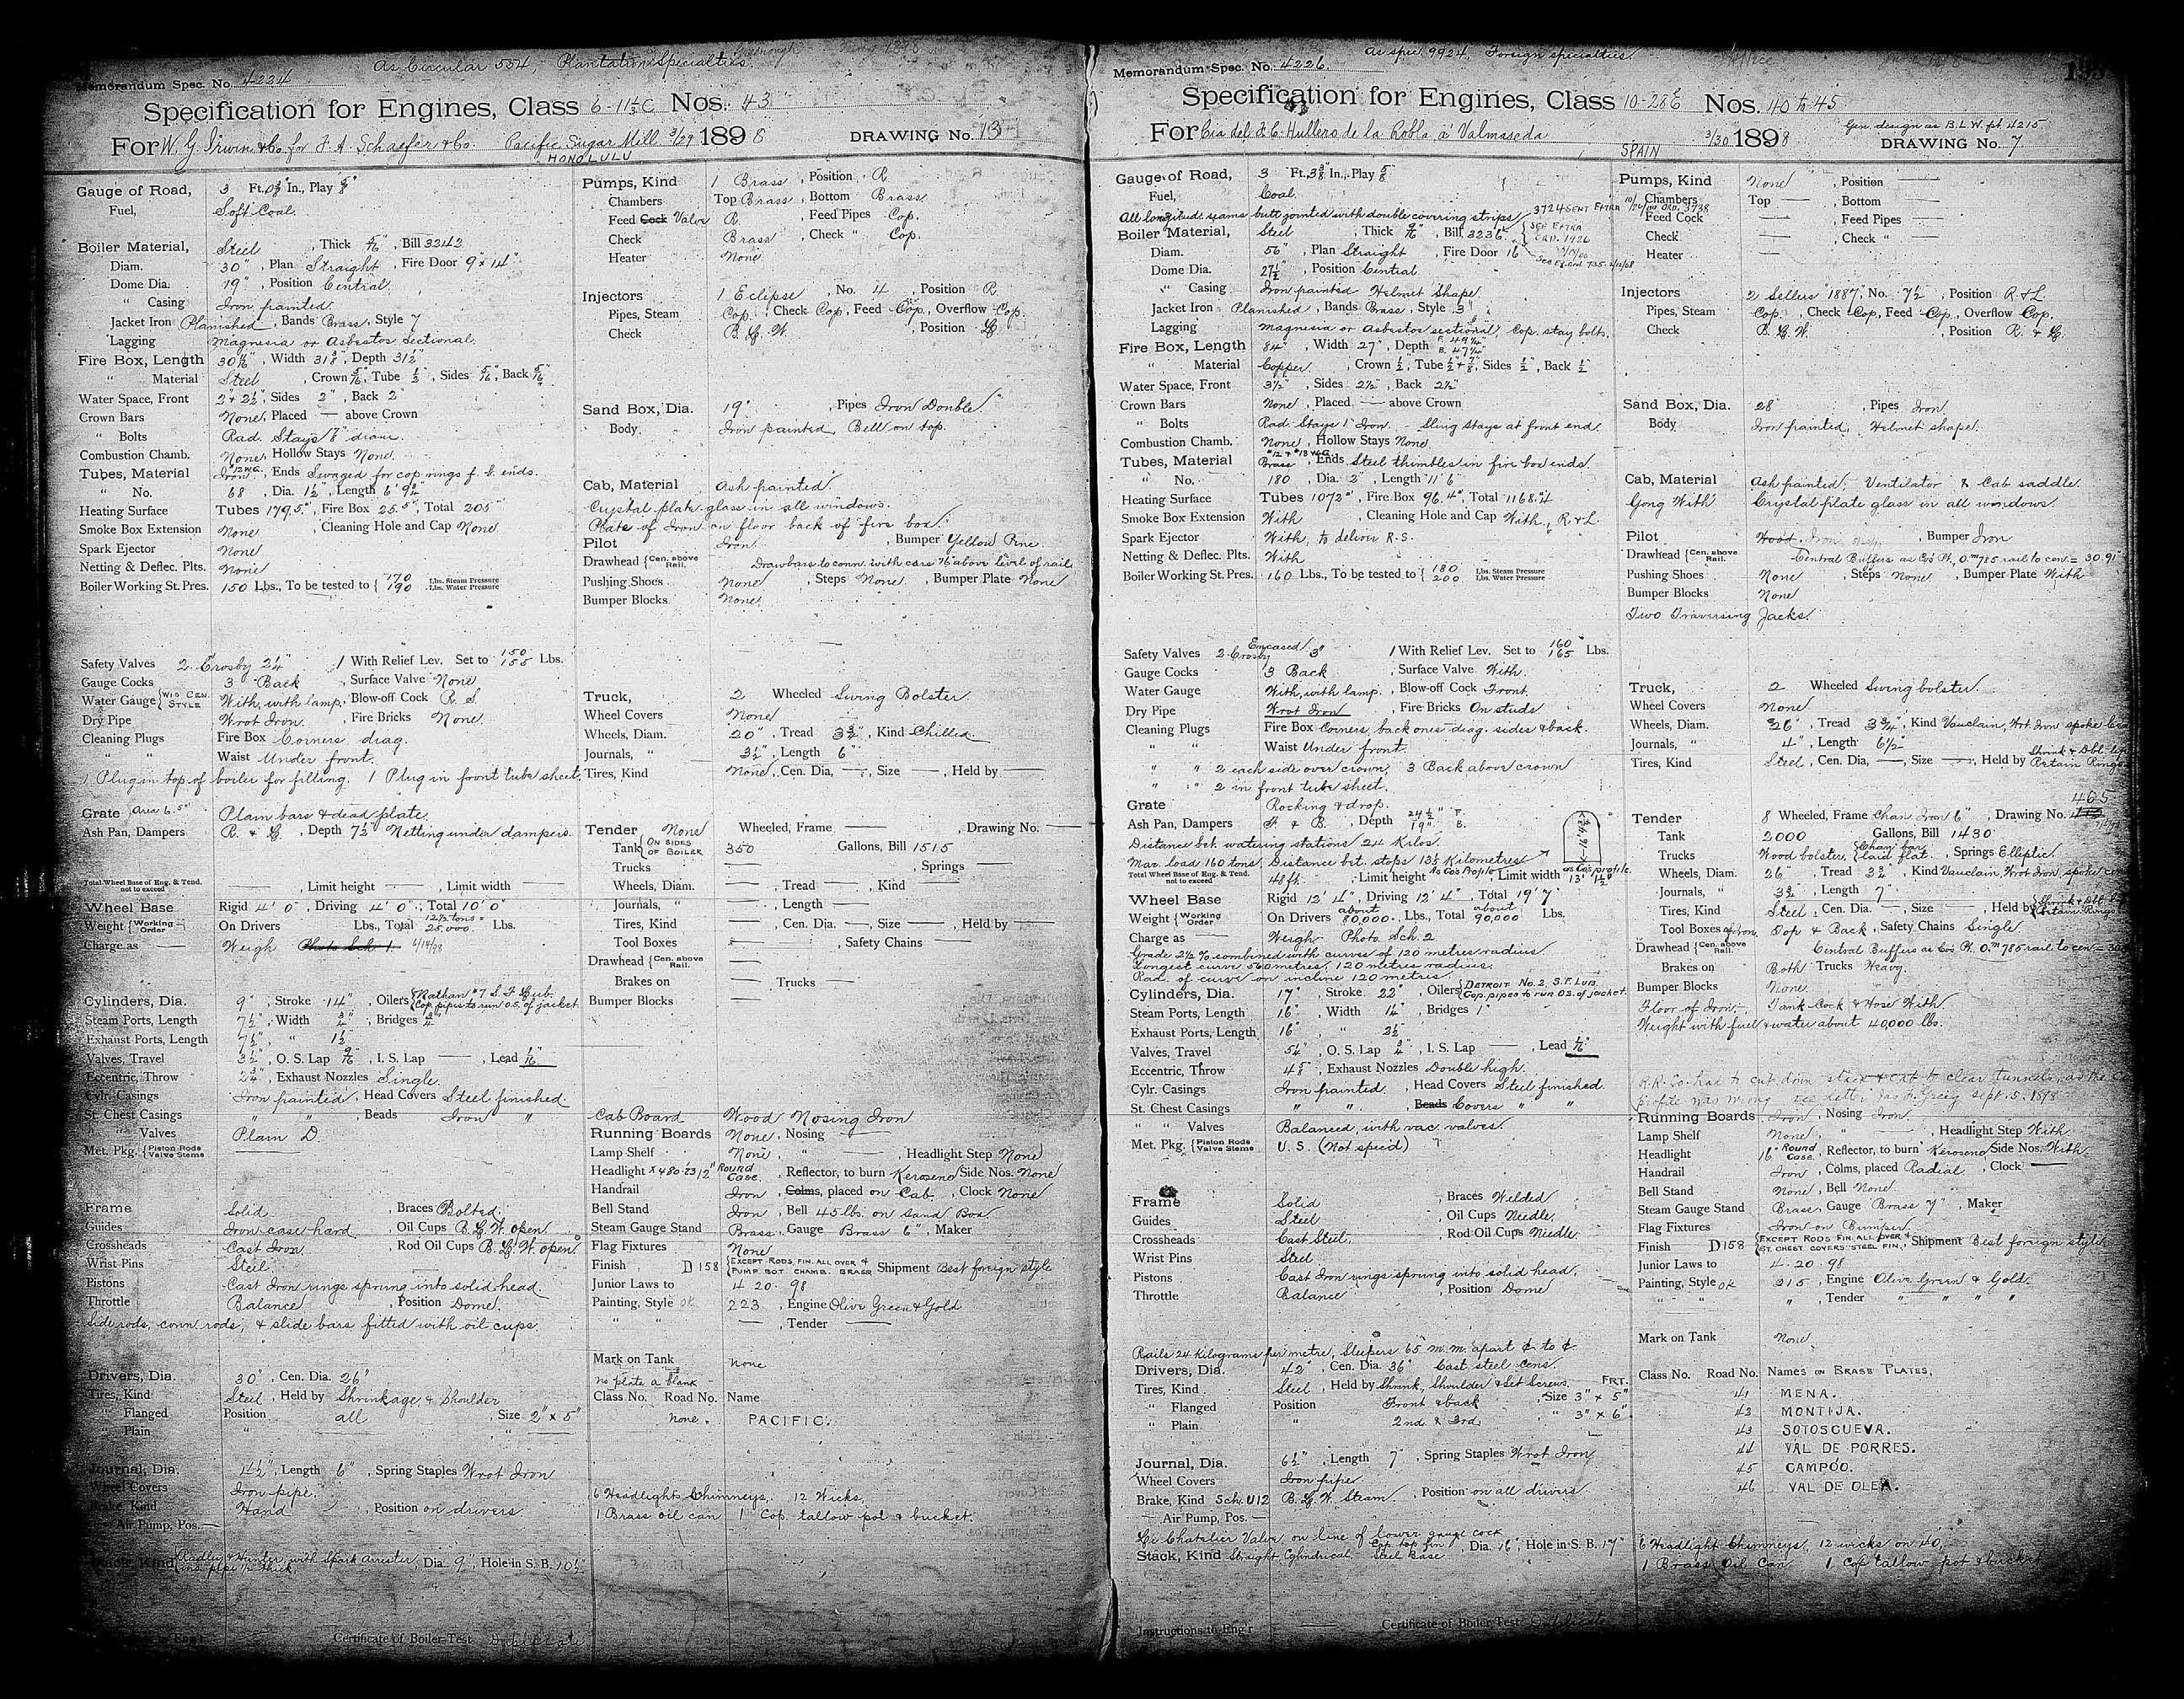 As Circular 534 Plantation Specialties
Memorandum Spec. No. 4224
Specification for Engines, Class 6-11⅓ C Nos. 43
For W. G. Irwin & Co. for F. A. Schaefer & Co. Pacific Sugar Mill 3/29 1898 DRAWING No. 13
HONOLULU
Gauge of Road, 3 Ft. 0⅜ In., Play ⅝"
Fuel, Soft Coal.
Boiler Material, Steel, Thick 5/16", Bill 3242
Diam. 30", Plan Straight, Fire Door 9" x 14"
Dome Dia. 19", Position Central.
" Casing Iron painted
Jacket Iron Planished, Bands Brass, Style 7
Lagging Magnesia or Asbestos Sectional.
Fire Box, Length 30 " , Width 31⅜", Depth 31½"
" Material Steel, Crown 5/16", Tube ½", Sides 5/16", Back 5/16"
Water Space, Front 2 & 2½", Sides 2", Back 2"
Crown Bars None, Placed — above Crown
" Bolts Rad. Stays ⅞" diam.
Combustion Chamb. None, Hollow Stays None
Tubes, Material Iron #12 W.G., Ends Swaged for cop. rings f. b. ends.
" No. 68, Dia. 1½", Length 6' 9¾"
Heating Surface Tubes 179.5, Fire Box 25.5, Total 205
Smoke Box Extension None, Cleaning Hole and Cap None
Spark Ejector None
Netting & Deflec. Plts. None
Boiler Working St. Pres. 150 Lbs., To be tested to 170 Lbs. Steam Pressure 190 Lbs. Water Pressure
Safety Valves 2 Crosby 2¼" 1 With Relief Lev. Set to 150 155 Lbs.
Gauge Cocks 3 Back, Surface Valve None
Water Gauge WIS CEN. STYLE With, with lamp, Blow-off Cock R. S.
Dry Pipe Wrot Iron, Fire Bricks None.
Cleaning Plugs Fire Box Corners diag.
" " Waist Under front.
1 Plug in top of boiler for filling. 1 Plug in front tube sheet.
Grate Area 6.5 Plain bars & dead plate.
Ash Pan, Dampers R. & L., Depth 7½" Netting under dampers.
Total Wheel Base of Eng. & Tend. not to exceed —, Limit height —, Limit width —
Wheel Base Rigid 4' 0", Driving 4' 0", Total 10' 0"
Weight Working Order On Drivers Lbs., Total 12½ tons = 25,000 Lbs.
Charge as Weigh Photo Sch. 1. 6/14/98
Cylinders, Dia. 9", Stroke 14", Oilers Nathan #7 S. F. Lub. Cop. pipes to run O.S. of jacket
Steam Ports, Length 7½", Width ¾", Bridges ¾"
Exhaust Ports, Length 7½", " 1½"
Valves, Travel 3½", O. S. Lap 9/16", I. S. Lap —, Lead 1/16"
Eccentric, Throw 2¾", Exhaust Nozzles Single.
Cylr. Casings Iron painted, Head Covers Steel finished.
St. Chest Casings " ", Beads Iron "
" " Valves Plain D.
Met. Pkg. Piston Rods Valve Stems —
Frame Solid, Braces Bolted.
Guides Iron case-hard, Oil Cups B. L. W. open
Crossheads Cast Iron, Rod Oil Cups B. L. W. open
Wrist Pins Steel.
Pistons Cast Iron rings sprung into solid head.
Throttle Balance, Position Dome.
Side rods, conn. rods, & slide bars fitted with oil cups.
Drivers, Dia. 30", Cen. Dia. 26"
Tires, Kind Steel, Held by Shrinkage & Shoulder
" Flanged Position all, Size 2" x 5"
" Plain " — " —
Journal, Dia. 4½", Length 6", Spring Staples Wrot Iron
Wheel Covers Iron pipe.
Brake, Kind Hand, Position on drivers
Air Pump, Pos. —
Stack, Kind Radley & Hunter, with Spark Arrester, Dia. 9", Hole in S. B. 10½"
Certificate of Boiler Test Duplicate
Pumps, Kind 1 Brass, Position R
Chambers Top Brass, Bottom Brass
Feed Cock Valve R., Feed Pipes Cop.
Check Brass, Check " Cop.
Heater None
Injectors 1 Eclipse, No. 4, Position R
Pipes, Steam Cop., Check Cop, Feed Cop., Overflow Cop.
Check B. L. W., Position L.
Sand Box, Dia. 19", Pipes Iron Double.
Body Iron painted, Bell on top.
Cab, Material Ash painted.
Crystal plate glass in all windows.
Plate of Iron on floor back of fire box.
Pilot Iron, Bumper Yellow Pine
Drawhead Cen. above Rail. Drawbars to conn. with cars 16" above level of rail
Pushing Shoes None, Steps None, Bumper Plate None
Bumper Blocks None.
Truck, 2 Wheeled Swing Bolster
Wheel Covers None
Wheels, Diam. 20", Tread 3¾", Kind Chilled.
Journals, " 3½", Length 6"
Tires, Kind None, Cen. Dia. —, Size —, Held by —
Tender None Wheeled, Frame —, Drawing No. —
Tank ON SIDES OF BOILER 350 Gallons, Bill 1515
Trucks —, Springs —
Wheels, Diam. —, Tread —, Kind —
Journals, " —, Length —
Tires, Kind —, Cen. Dia. —, Size —, Held by —
Tool Boxes —, Safety Chains —
Drawhead Cen. above Rail. —
Brakes on — Trucks —
Bumper Blocks —
Cab Board Wood Nosing Iron
Running Boards None, Nosing —
Lamp Shelf None, " —, Headlight Step None
Headlight 12" Round Case, Reflector, to burn Kerosene Side Nos. None
Handrail Iron, Colms, placed on Cab, Clock None
Bell Stand Iron, Bell 45 lbs. on Sand Box.
Steam Gauge Stand Brass, Gauge Brass 6", Maker
Flag Fixtures None
Finish D 158 EXCEPT RODS FIN. ALL OVER & PUMP BOT CHAMB. BRASS Shipment Best foreign style
Junior Laws to 4. 20. 98
Painting, Style OK 223, Engine Olive Green & Gold
" " —, Tender —
Mark on Tank None
no plate a blank
Class No. Road No. Name
None. PACIFIC.
6 Headlights Chimneys, 12 Wicks,
1 Brass oil can 1 Cop. tallow pot & bucket.
As spec 9924. Foreign specialties.
Memorandum Spec. No. 4226
Specification for Engines, Class 10-28 E Nos. 40 to 45
Gen. design as B. L. W. pt. 4215
For Cia del F. C. Hullero de la Robla á Valmaseda 3/30 1898 DRAWING No. 7
SPAIN
Gauge of Road, 3 Ft. 3⅜ In., Play ⅝
Fuel, Coal.
All longitud. seams butt jointed with double covering strips
3724 SENT EXTRA
Boiler Material, Steel, Thick 9/16", Bill 3236
SEE EXTRA ORD. 1926
Diam. 56", Plan Straight, Fire Door 16"
Dome Dia. 27½", Position Central
" Casing Iron painted Helmet Shape.
Jacket Iron Planished, Bands Brass, Style 3
Lagging Magnesia or Asbestos sectional, Cop. stay bolts.
Fire Box, Length 84", Width 27", Depth F. 49¼" B. 47¼"
" Material Copper, Crown ½", Tube ½" & ⅞", Sides ½", Back ½"
Water Space, Front 3½", Sides 2½", Back 2½"
Crown Bars None, Placed — above Crown
" Bolts Rad. Stays 1" Iron. - Sling Stays at front end.
Combustion Chamb. None, Hollow Stays None
Tubes, Material Brass #12 & #13 W.G., Ends Steel thimbles in fire box ends
" No. 180, Dia. 2", Length 11' 6"
Heating Surface Tubes 1072, Fire Box 96.4, Total 1168.4
Smoke Box Extension With, Cleaning Hole and Cap With, R. & L.
Spark Ejector With, to deliver R. S.
Netting & Deflec. Plts. With
Boiler Working St. Pres. 160 Lbs., To be tested to 180 Lbs. Steam Pressure 200 Lbs. Water Pressure
Safety Valves 2 Crosby Encased 3" 1 With Relief Lev. Set to 160 165 Lbs.
Gauge Cocks 3 Back, Surface Valve With.
Water Gauge With, with lamp., Blow-off Cock Front.
Dry Pipe Wrot Iron, Fire Bricks On studs
Cleaning Plugs Fire Box Corners, back ones diag. sides & back.
" " Waist Under front.
" " 2 each side over crown, 3 Back above crown
" " 2 in front tube sheet.
Grate Rocking & drop.
Ash Pan, Dampers F. & B., Depth 24½" F. 19" B.
Distance bet. watering stations 24 Kilos.
Max. load 160 tons Distance bet. stops 13½ Kilometres
Total Wheel Base of Eng. & Tend. not to exceed 48 ft., Limit height As Co's Profile, Limit width as Co's profile
Wheel Base Rigid 12' 4", Driving 12' 4", Total 19' 7"
Weight Working Order On Drivers about 80,000. Lbs., Total about 90,000 Lbs.
Charge as Weigh Photo Sch. 2
Grade 2½ % combined with curves of 120 metres radius.
Longest curve 560 metres, 120 metres radius.
Rad. of curve on incline 120 metres.
Cylinders, Dia. 17", Stroke 22", Oilers DETROIT No. 2 S. F. LUB. Cop. pipes to run O.S. of jacket.
Steam Ports, Length 16", Width 1¼", Bridges 1"
Exhaust Ports, Length 16", " 2½"
Valves, Travel 5¼", O. S. Lap ¾", I. S. Lap —, Lead 1/16"
Eccentric, Throw , Exhaust Nozzles Double high
Cylr. Casings Iron painted, Head Covers Steel finished.
St. Chest Casings " ", Beads Covers " "
" " Valves Balanced, with vac. valves.
Met. Pkg. Piston Rods Valve Stems U. S. (Not specid)
Frame Solid, Braces Welded
Guides Steel, Oil Cups Needle,
Crossheads Cast Steel., Rod Oil Cups Needle
Wrist Pins Steel
Pistons Cast Iron rings sprung into solid head.
Throttle Balance, Position Dome
Rails 24 Kilograms per metre, Sleepers 65 m. m. apart ¢ to ¢
Drivers, Dia. 42", Cen. Dia. 36" Cast steel Cens.
Tires, Kind Steel, Held by Shrink, Shoulder & Set Screws. FRT.
" Flanged Position Front & back, Size 3" x 5"
" Plain " 2nd & 3rd, " 3" x 6"
Journal, Dia. 6½", Length 7", Spring Staples Wrot Iron
Wheel Covers Iron pipe
Brake, Kind Sch. U12 B. L. W. Steam, Position on all drivers
Air Pump, Pos. —
Le Chatelier Valve on line of lower gauge cock
Stack, Kind Straight Cylindrical Cop. top fin Steel Base, Dia. 16", Hole in S. B. 17"
Instructions to Eng'r — Certificate of Boiler Test Duplicate
Pumps, Kind None, Position —
Chambers Top —, Bottom —
Feed Cock —, Feed Pipes —
Check —, Check " —
Heater —
Injectors 2 Sellers "1887", No. 7½, Position R & L
Pipes, Steam Cop., Check Cop, Feed Cop, Overflow Cop.
Check B. L. W., Position R. & L.
Sand Box, Dia. 28", Pipes Iron
Body Iron painted, Helmet shape.
Cab, Material Ash painted, Ventilator & Cab saddle.
Gong With Crystal plate glass in all windows.
Pilot Wood Iron, Bumper Iron
Drawhead Cen. above Rail. Central Buffers as Co's Pt., 0.m785 rail to cen. = 30.91"
Pushing Shoes None, Steps None, Bumper Plate With
Bumper Blocks None
Two Traversing Jacks.
Truck, 2 Wheeled Swing bolster.
Wheel Covers None
Wheels, Diam. 26", Tread 3¾", Kind Vauclain, Wrot Iron spoke
Journals, " 4", Length 6½"
Tires, Kind Steel, Cen. Dia. —, Size —, Held by Shrink & Dbl-lip Retain Rings
Tender 8 Wheeled, Frame Chan Iron 6", Drawing No. 405
Tank 2000 Gallons, Bill 1430
Trucks Wood bolster, Chan. bar laid flat, Springs Elliptic.
Wheels, Diam. 26", Tread 3¾", Kind Vauclain, Wrot Iron, spoke
Journals, " 3¾", Length 7"
Tires, Kind Steel, Cen. Dia. —, Size —, Held by Shrink & Retain Rings
Tool Boxes of Iron. Top & Back, Safety Chains Single
Drawhead Cen. above Rail. Central Buffers as Co's Pt. 0.m785 rail to cen =
Brakes on Both Trucks Heavy.
Bumper Blocks None
Floor of Iron, Tank Cock & Hose With
Weight with fuel & water about 40,000 lbs.
R.R. Co. had to cut down stack & cab to clear tunnels, as the
profile was wrong
Running Boards Iron, Nosing Iron
Lamp Shelf None, " —, Headlight Step With
Headlight 16" Round Case, Reflector, to burn Kerosene Side Nos. With
Handrail Iron, Colms, placed Radial, Clock —
Bell Stand None, Bell None
Steam Gauge Stand Brass, Gauge Brass 7", Maker
Flag Fixtures Iron on Bumper
Finish D 158 EXCEPT RODS FIN. ALL OVER & ST. CHEST COVERS STEEL FIN. Shipment Best foreign style
Junior Laws to 4. 20. 98
Painting, Style OK 215, Engine Olive Green & Gold.
" " ", Tender " " " "
Mark on Tank None
Class No. Road No. NAMES ON BRASS PLATES,
41 MENA.
42 MONTIJA.
43 SOTOSCUEVA.
44 VAL DE PORRES.
45 CAMPÓO.
46 VAL DE OLEA.
6 Headlight Chimneys, 12 wicks on 40,
1 Brass Oil Can 1 Cop tallow pot & bucket